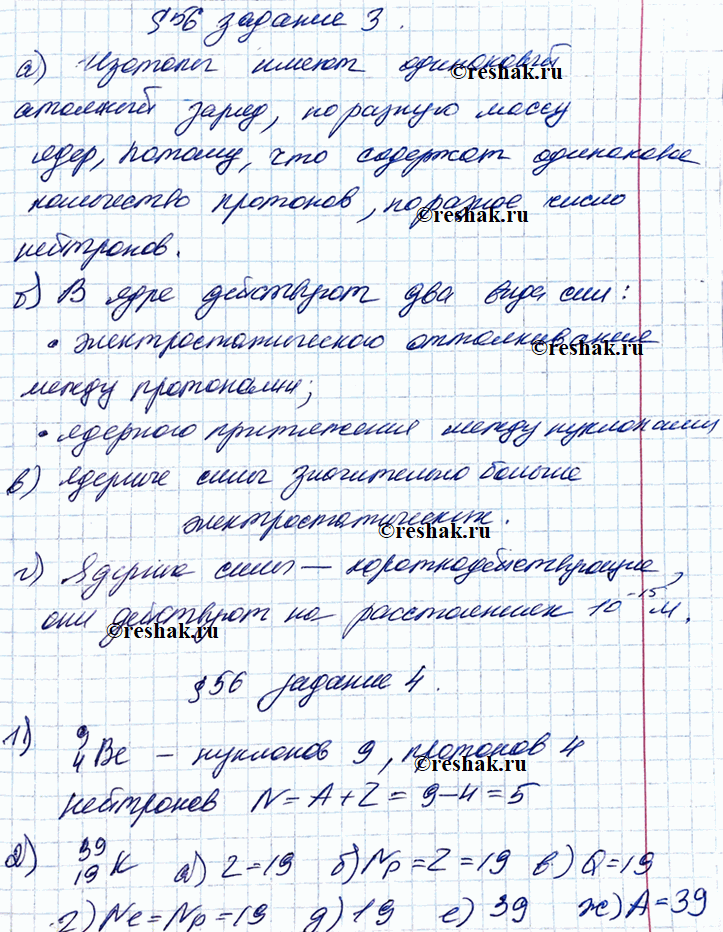 §56 задание 3.
а) Изотопы имеют одинаковый
©reshak.ru
атомный заряд, но разную массу
ядер, потому, что содержат одинаковое
количество протонов, но разное число
©reshak.ru
нейтронов.
б) В ядре действуют два вида сил:
• электростатического отталкивания
©reshak.ru
между протонами;
• ядерного притяжения между нуклонами
в) Ядерные силы значительно больше
электростатических.
©reshak.ru
г) Ядерные силы — короткодействующие,
они действуют на расстояниях 10⁻¹⁵ м.
©reshak.ru
§56 задание 4.
1) ⁹₄Be – нуклонов 9, протонов 4
©reshak.ru
нейтронов N = A + Z = 9 – 4 = 5
2) ³⁹₁₉K а) Z = 19 б) Np = Z = 19 в) Q = 19
г) Ne = Np = 19 д) 19 е) 39 ж) A = 39